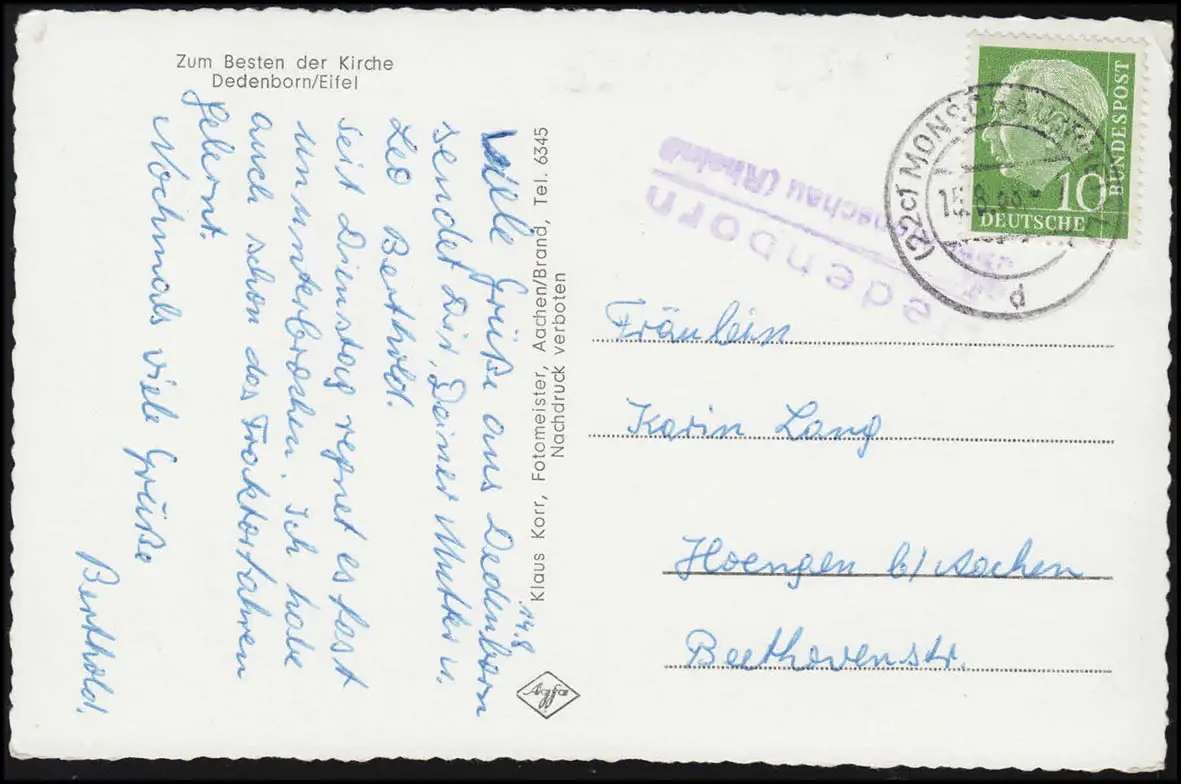 Zum Besten der Kirche
Dedenborn/Eifel
14.8.
Viele Grüße aus Dedenborn
sendet Dir, Deiner Mutter u.
Leo Berthold.
Seit Dienstag regnet es fast
ununterbrochen. Ich habe
auch schon das Traktorfahren
gelernt.
Nochmals viele Grüße
Berthold.
Klaus Korr, Fotomeister, Aachen/Brand, Tel. 6345
Nachdruck verboten
Agfa
DEUTSCHE
BUNDESPOST
10
(22c) MONSCHAU
d
Dedenborn
Monschau (Rheinl)
Fräulein
Karin Lang
Hoengen b/Aachen
Beethovenstr.